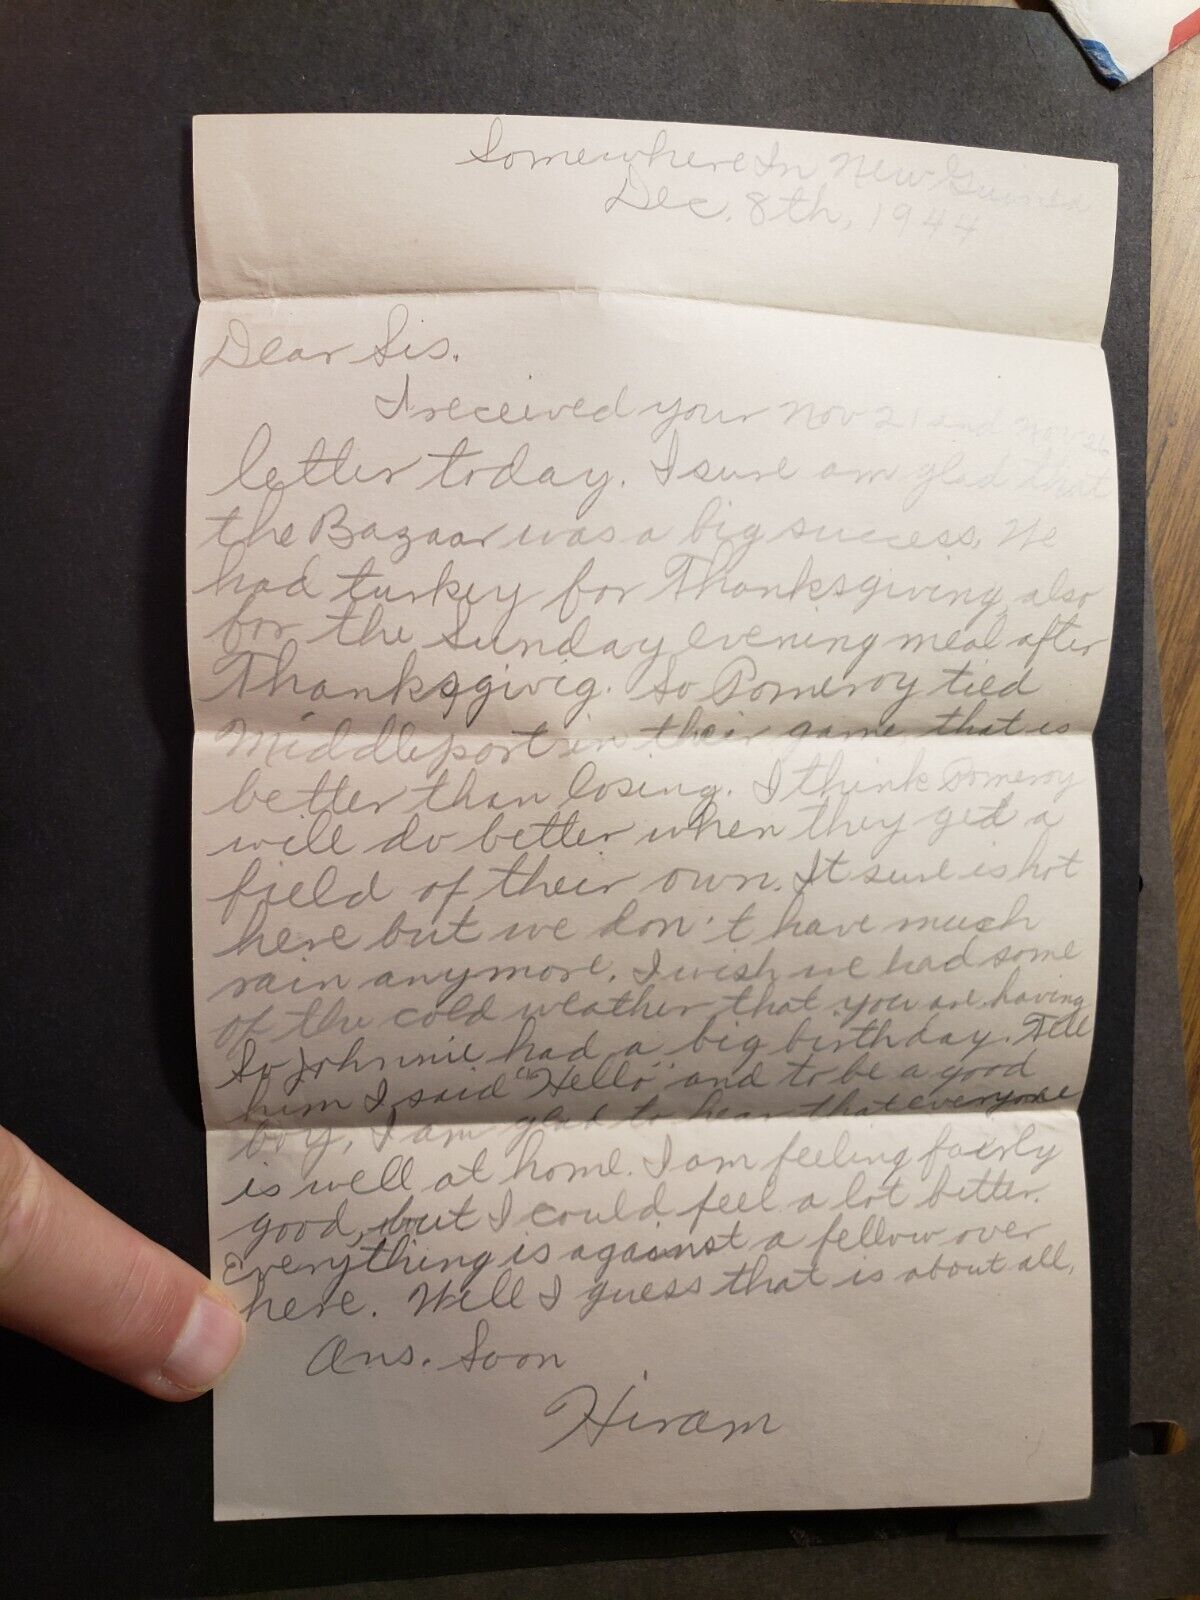 Somewhere In New Guinea
Dec. 8th, 1944
Dear Sis.
I received your Nov 21 and Nov 26
letter today. I sure am glad that
the Bazaar was a big success. We
had turkey for Thanksgiving, also
for the Sunday evening meal after
Thanksgivig. So Pomeroy tied
Middleport in their game that is
better than losing. I think Pomeroy
will do better when they get a
field of their own. It sure is hot
here but we don't have much
rain anymore. I wish we had some
of the cold weather that you are having
So Johnnie had a big birthday. Tell
him I said "Hello" and to be a good
boy, I am glad to hear that everyone
is well at home. I am feeling fairly
good, but I could feel a lot better.
Everything is against a fellow over
here. Well I guess that is about all.
Ans. Soon
Hiram